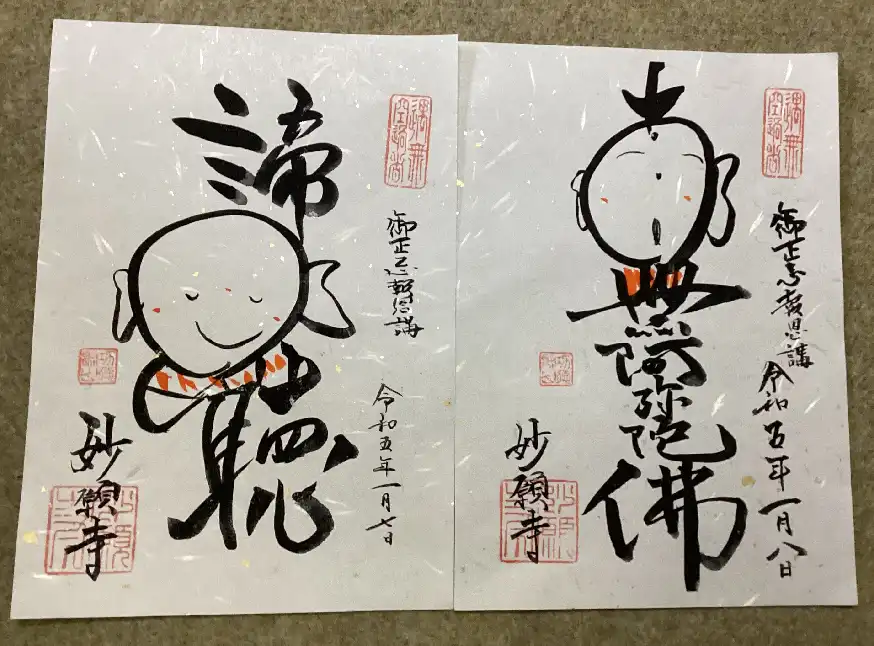 遇無
空過者
御正忌報恩講
令和五年一月七日
諦聴
妙願寺
遇無
空過者
御正忌報恩講
令和五年一月八日
南無阿弥陀佛
妙願寺